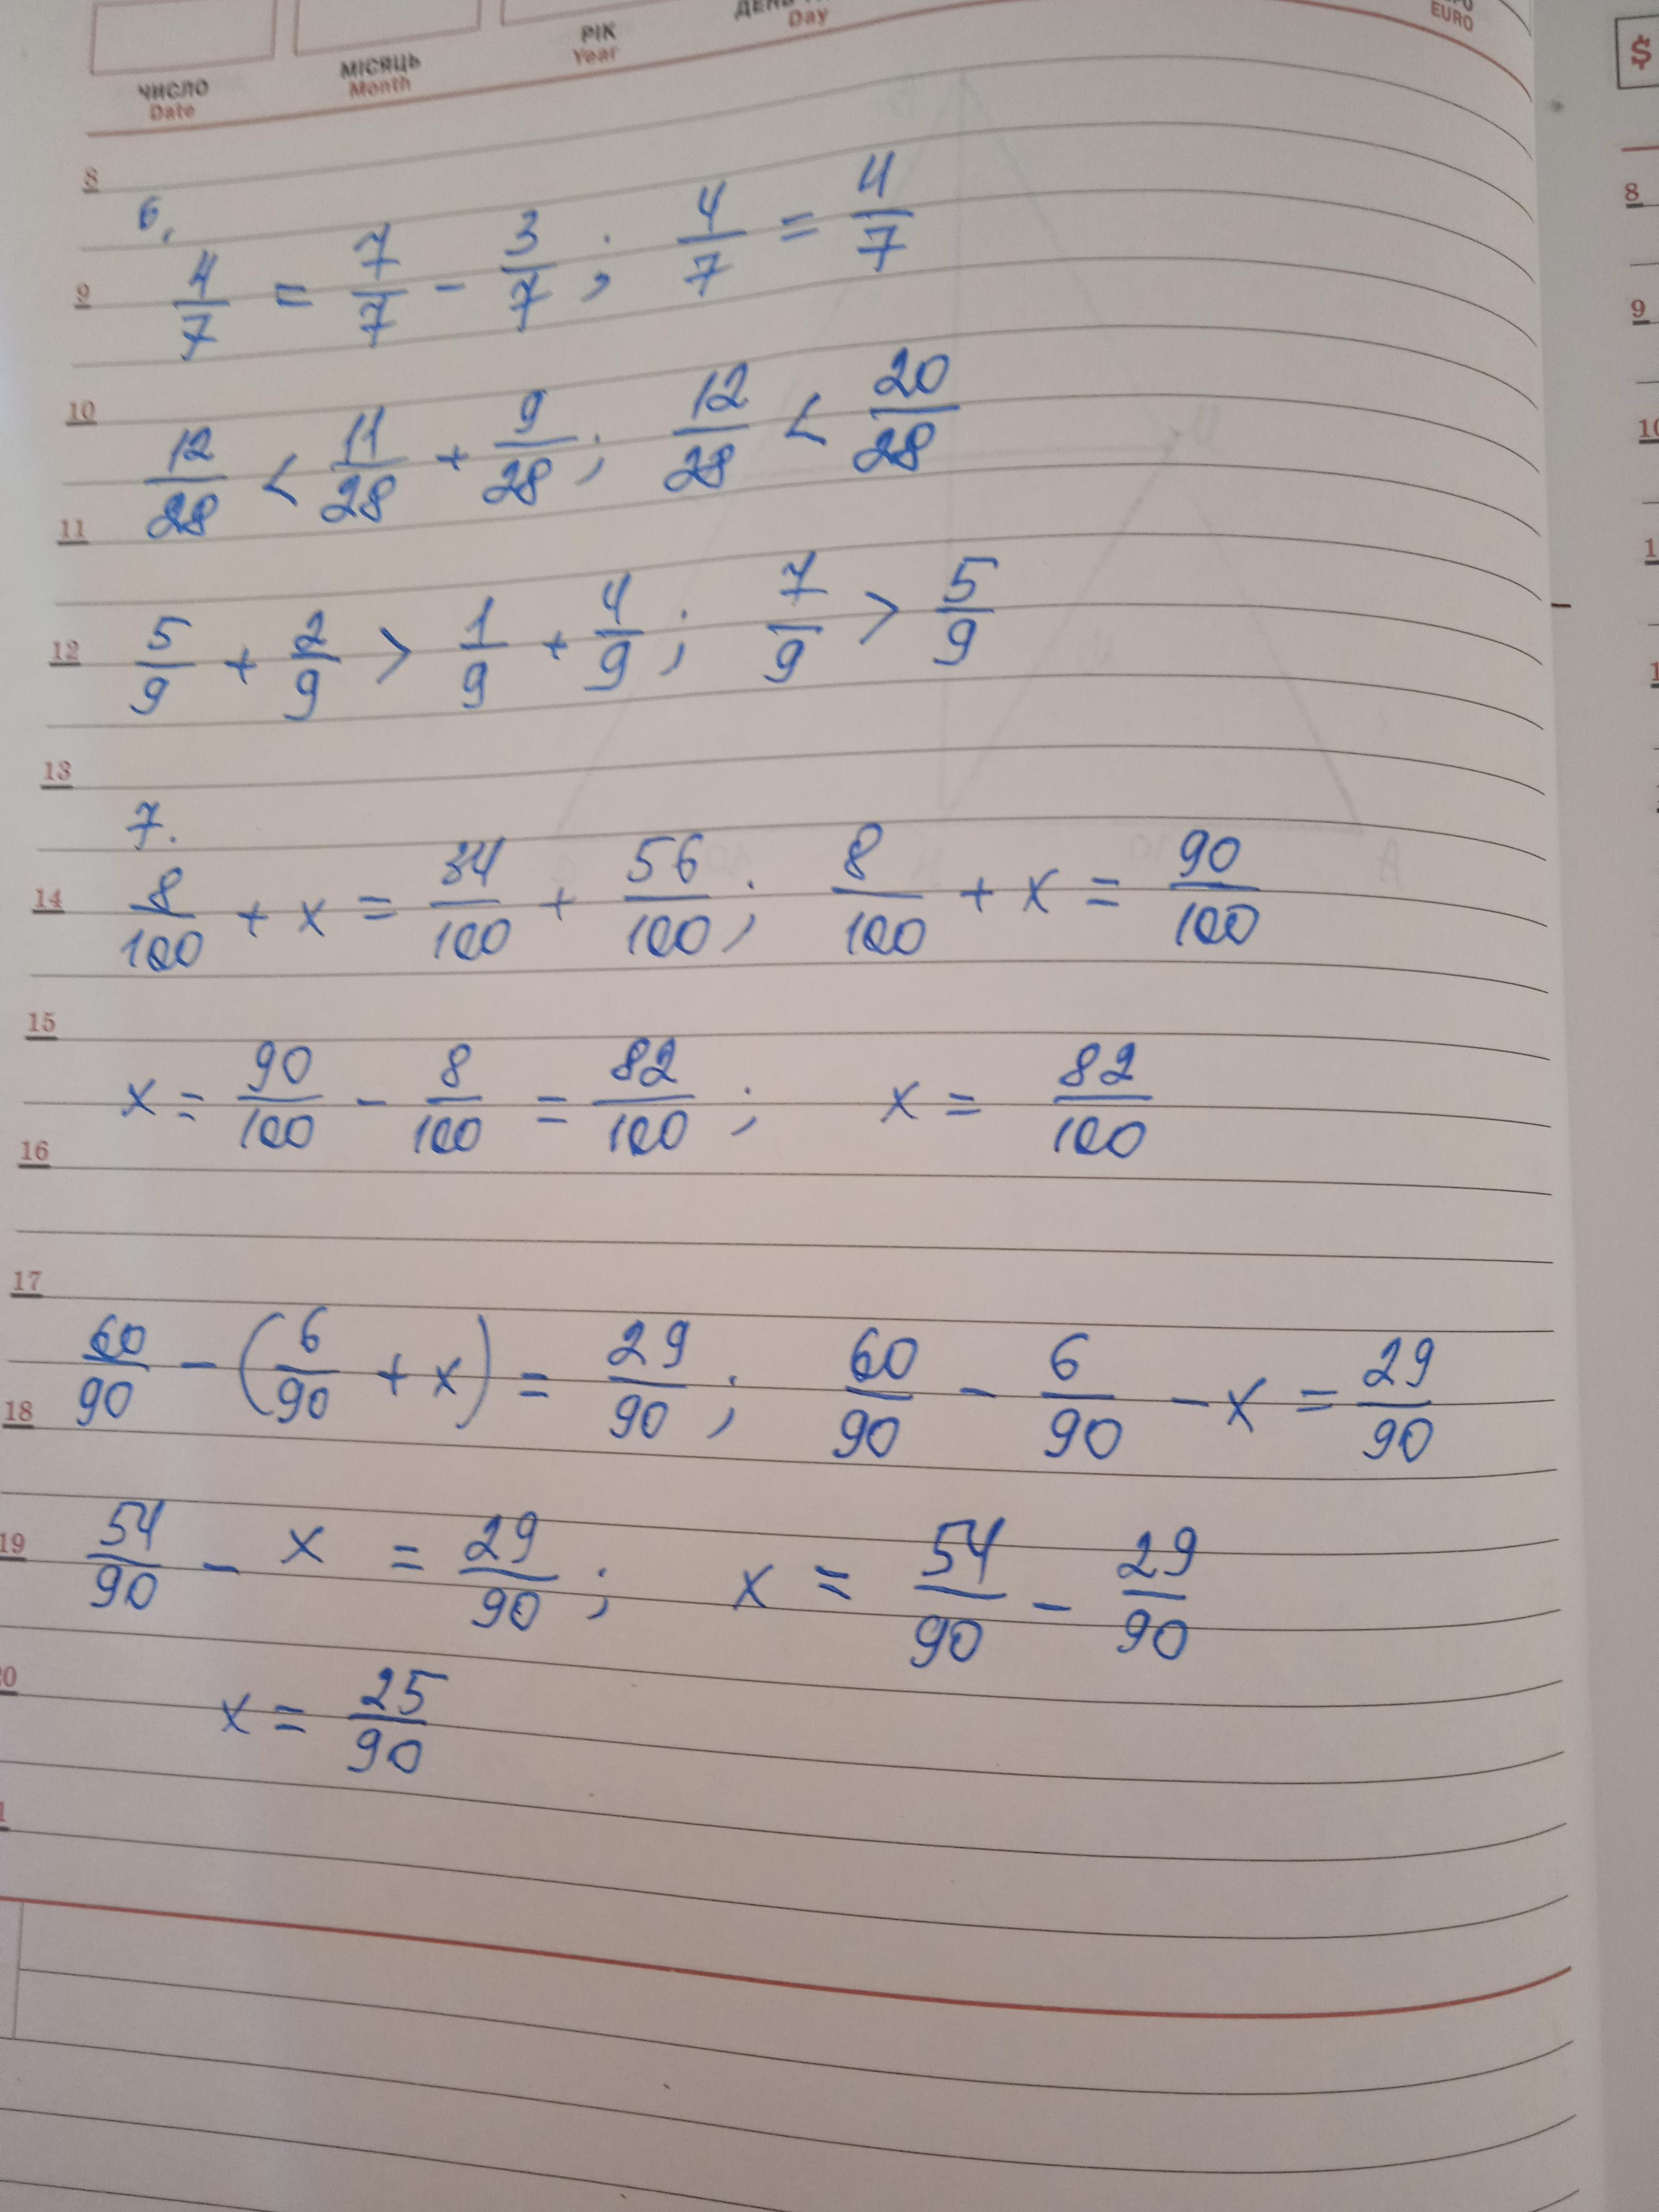 ЧИСЛО МІСЯЦЬ РІК
Date Month Year Day EURO $
8
6.
9 4/7 = 7/7 - 3/7; 4/7 = 4/7
10
12/28 < 11/28 + 9/28; 12/28 < 20/28
11
12 5/9 + 2/9 > 1/9 + 4/9; 7/9 > 5/9
13
7.
14 8/100 + x = 34/100 + 56/100; 8/100 + x = 90/100
15
x = 90/100 - 8/100 = 82/100; x = 82/100
16
17
60/90 - (6/90 + x) = 29/90; 60/90 - 6/90 - x = 29/90
18
19 54/90 - x = 29/90; x = 54/90 - 29/90
x = 25/90